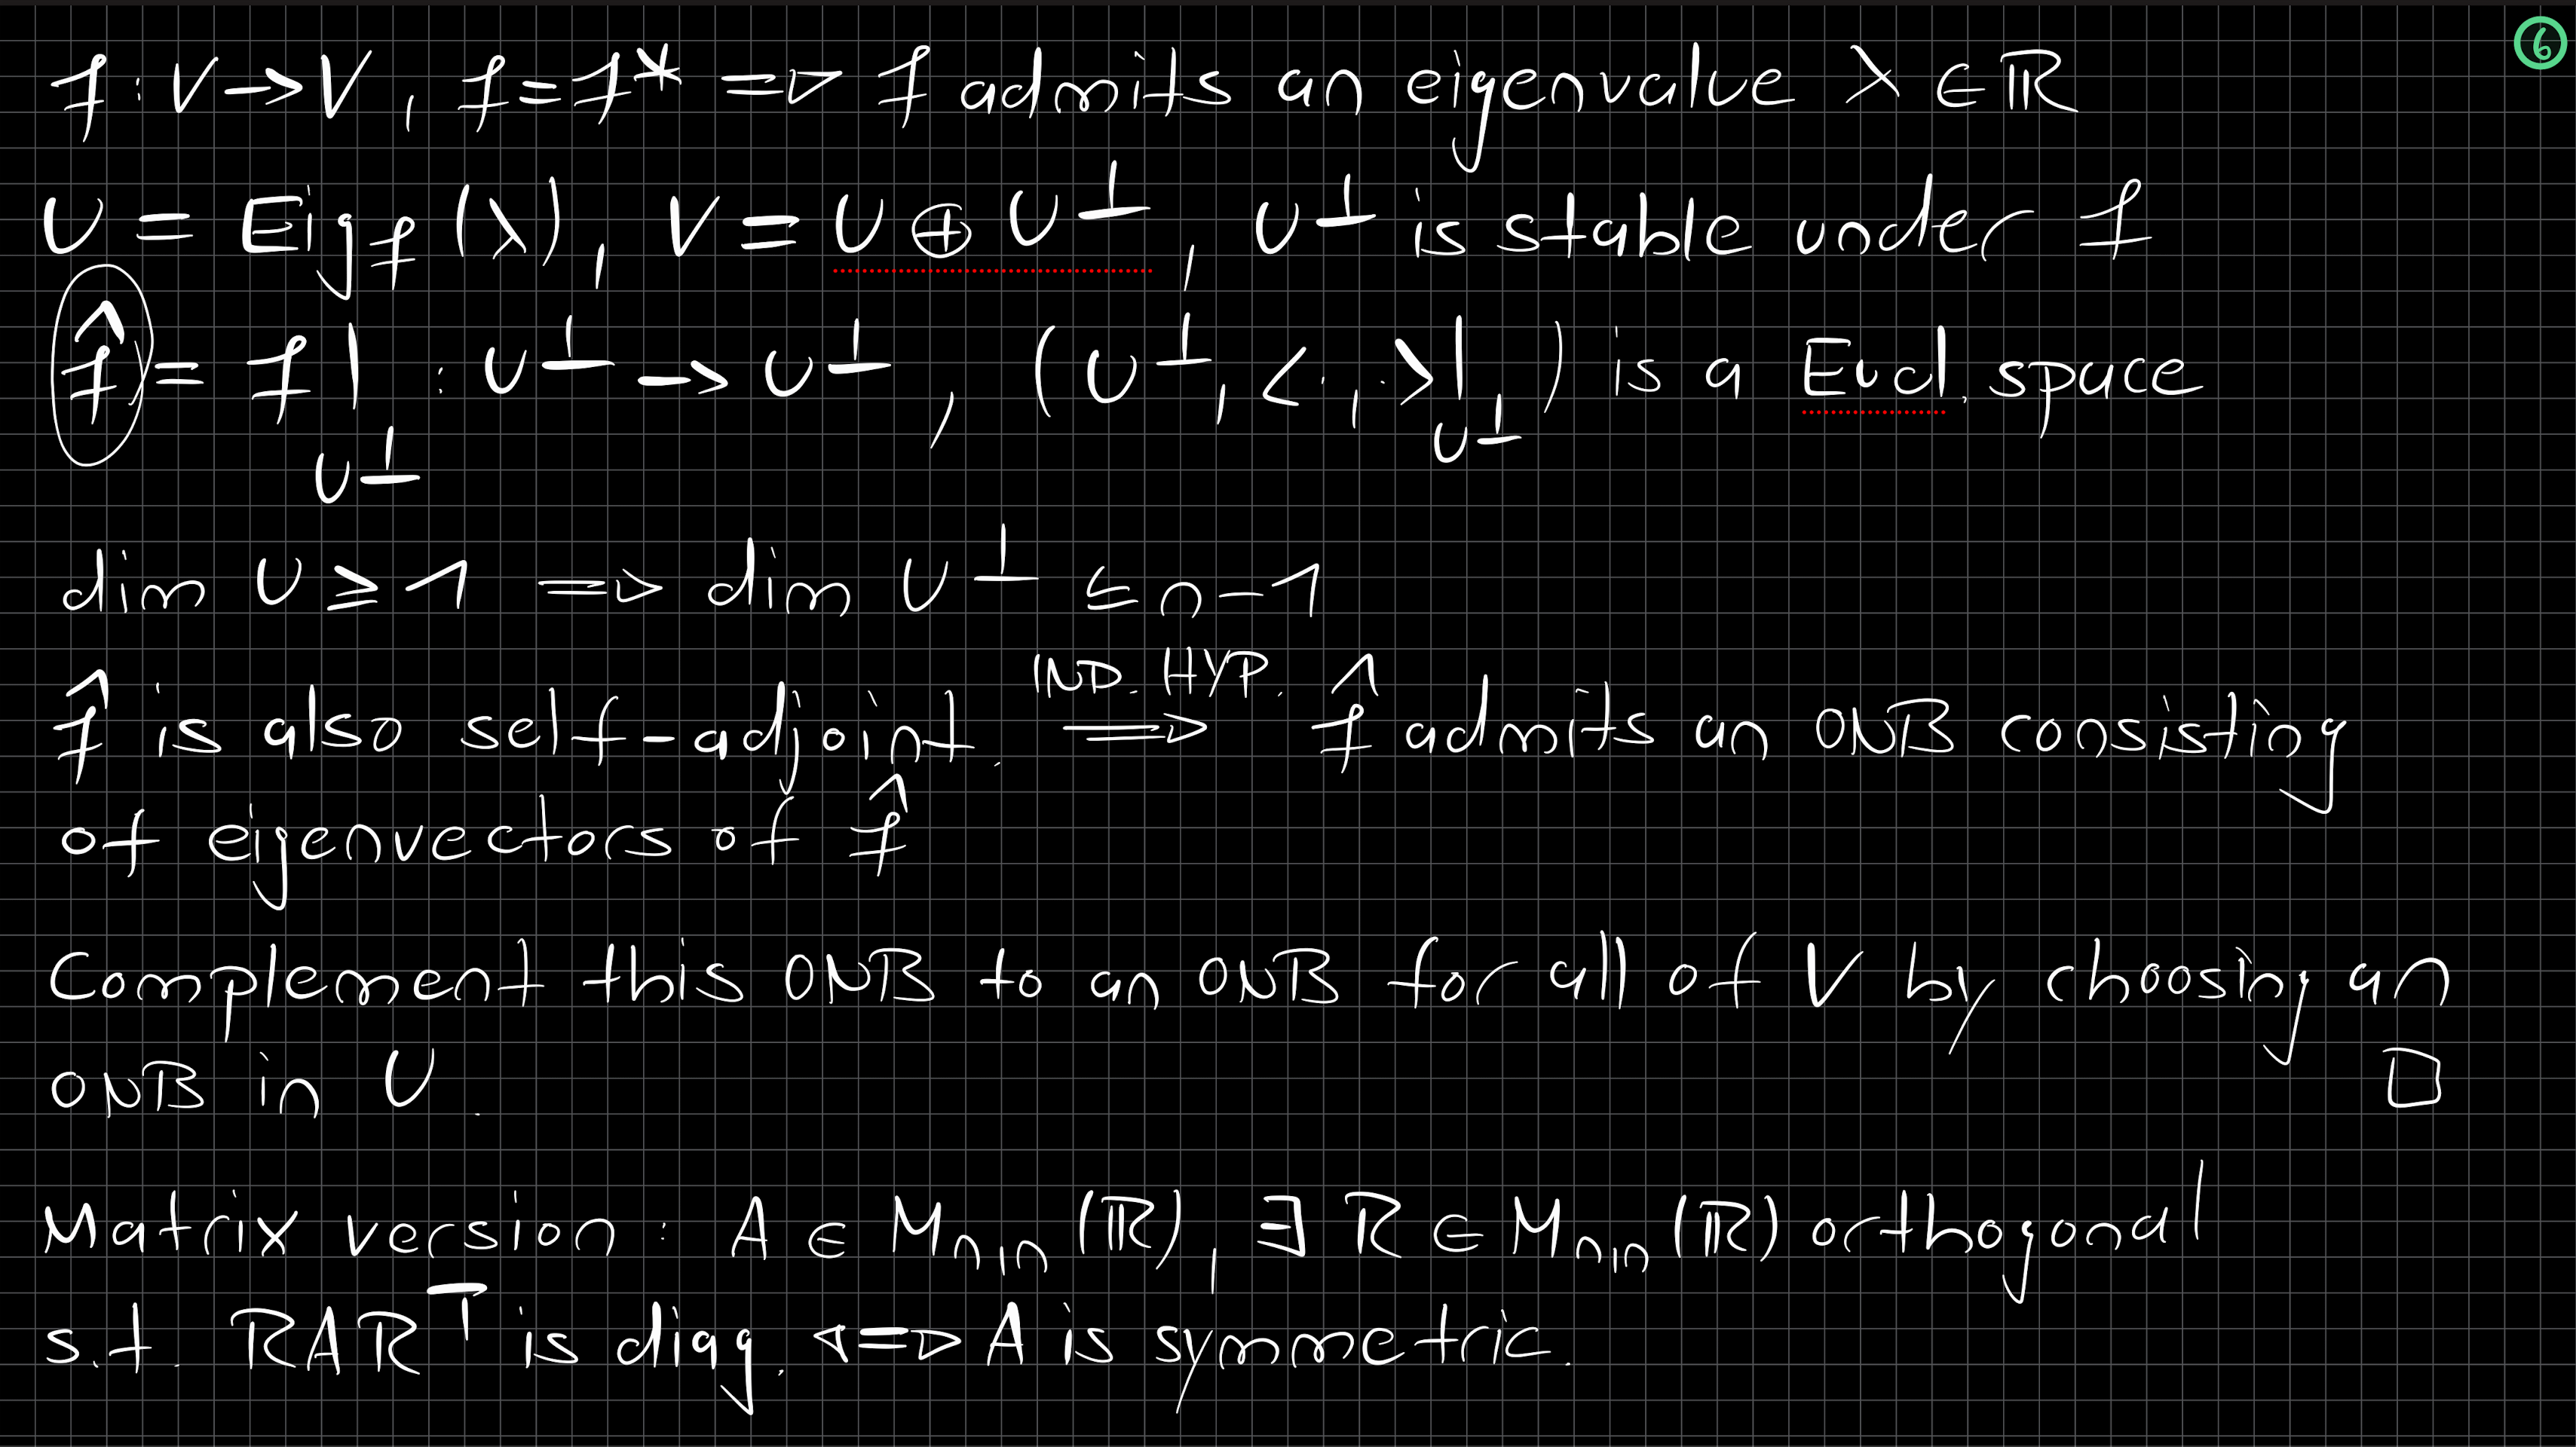 ⑥
f : V → V, f = f* ⇒ f admits an eigenvalue λ ∈ ℝ
U = Eig_f(λ), V = U ⊕ U^⊥, U^⊥ is stable under f
f̂ = f|_{U^⊥} : U^⊥ → U^⊥, (U^⊥, <·,·>|_{U^⊥}) is a Eucl. space
dim U ≥ 1 ⇒ dim U^⊥ ≤ n-1
f̂ is also self-adjoint. IND. HYP. ⇒ f̂ admits an ONB consisting
of eigenvectors of f̂
Complement this ONB to an ONB for all of V by choosing an
ONB in U. □
Matrix version: A ∈ M_{n,n}(ℝ), ∃ R ∈ M_{n,n}(ℝ) orthogonal
s.t. RAR^T is diag. ⇔ A is symmetric.